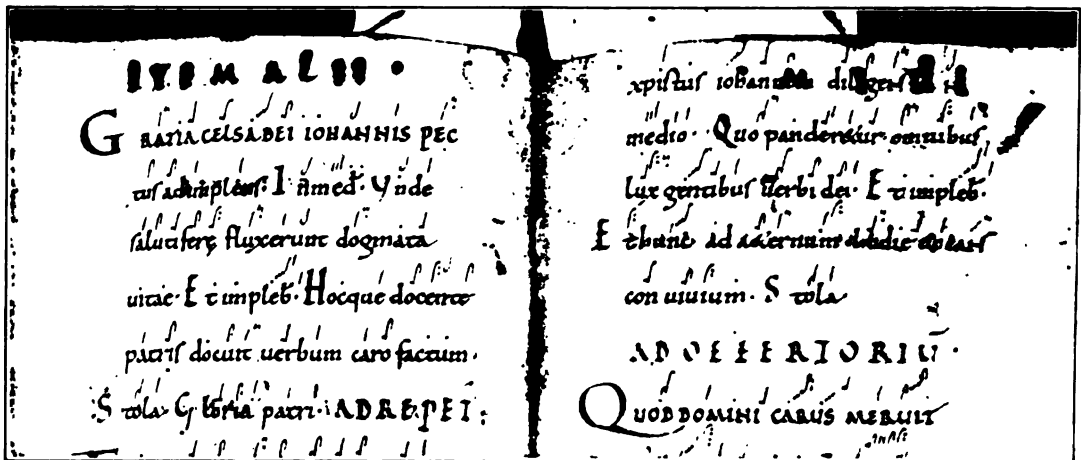 ITEM ALII ·
GRATIA CELSA DEI IOHANNIS PEC
tus adimplens· In med· Unde
salutiferę fluxerunt dogmata
vitae· Et impleb· Hocque docente
patris docuit verbum caro factum·
Stola· Gloria patri· AD REPET·
xpistus iohannem diligens in
medio· Quo panderetur omnibus
lux gentibus verbi dei· Et impleb·
Et hunc ad aeternum
convivium· Stola
AD OFFERTORIŪ·
QUOD DOMINI CARUS MERUIT